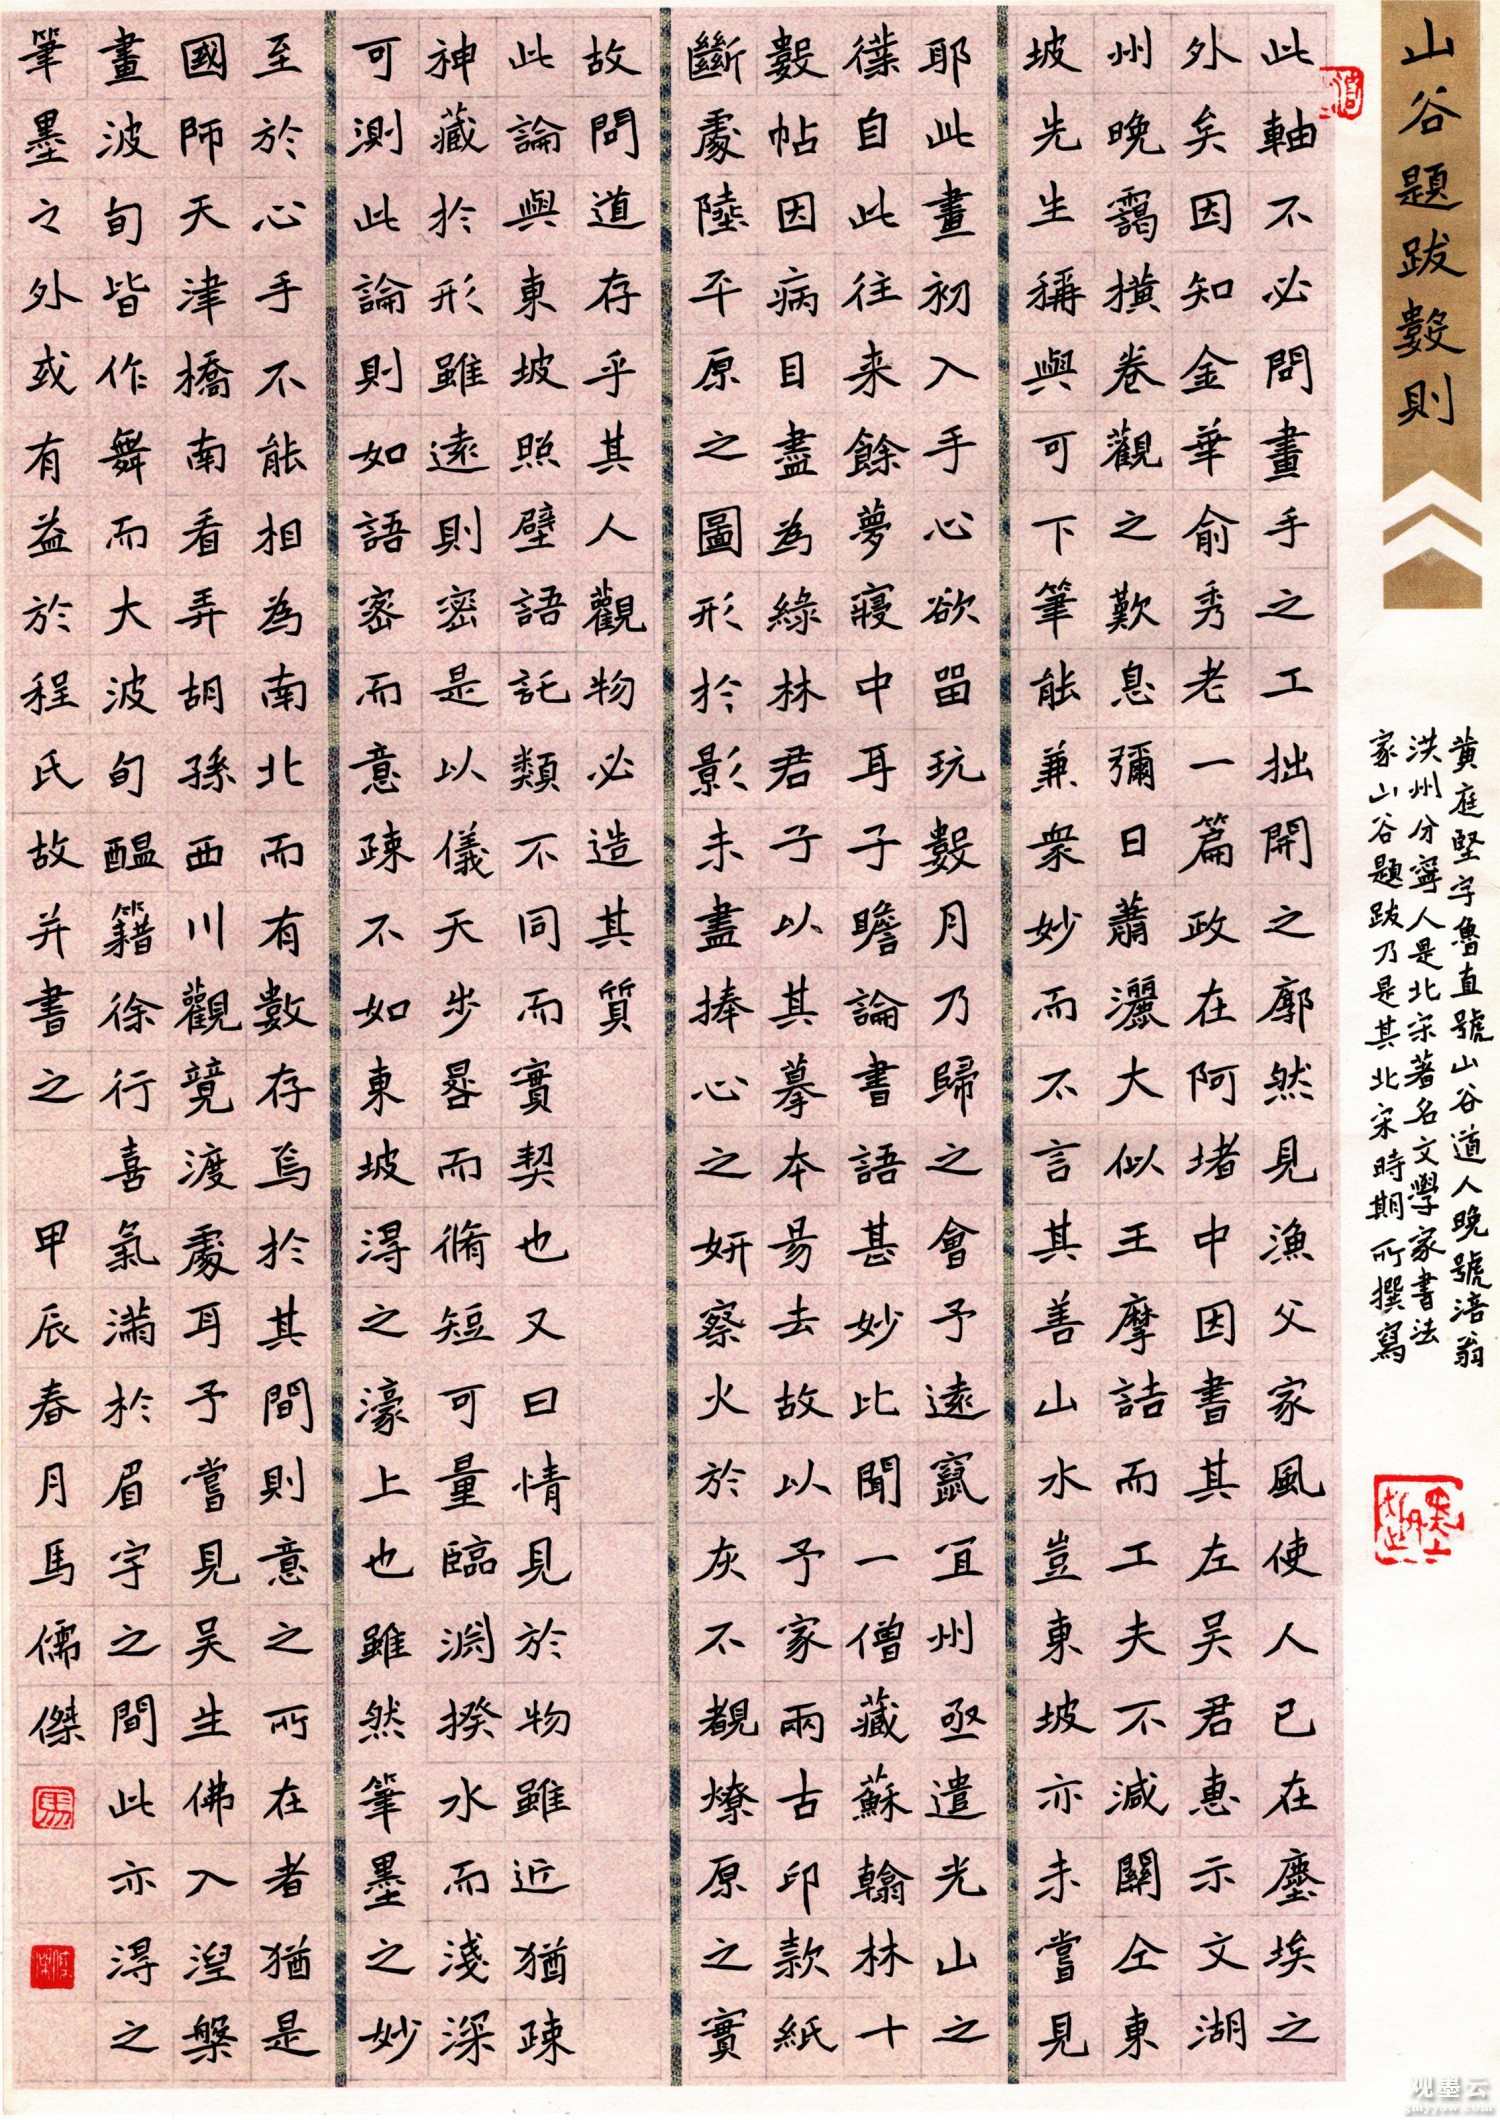 山谷題跋數則
黃庭堅字魯直號山谷道人晚號涪翁
洪州分寧人是北宋著名文學家書法
家山谷題跋乃是其北宋時期所撰寫
此軸不必問畫手之工拙開之廓然見漁父家風使人已在塵埃之
外矣因知金華俞秀老一篇政在阿堵中因書其左吴君惠示文湖
州晚靄橫卷觀之歎息彌日蕭灑大似王摩詰而工夫不減關仝東
坡先生稱與可下筆能兼衆妙而不言其善山水豈東坡亦未嘗見
耶此畫初入手心欲留玩數月乃歸之會予遠竄宜州亟遣光山之
徒自此往来餘夢寢中耳子瞻論書語甚妙比聞一僧藏蘇翰林十
數帖因病目盡為綠林君子以其摹本易去故以予家兩古印款紙
斷處陸平原之圖形於影未盡捧心之妍察火於灰不覩燎原之實
故問道存乎其人觀物必造其質
此論與東坡照壁語託類不同而實契也又曰情見於物雖近猶疎
神藏於形雖遠則密是以儀天步晷而脩短可量臨淵揆水而淺深
可測此論則如語密而意疎不如東坡得之濠上也雖然筆墨之妙
至於心手不能相為南北而有數存焉於其間則意之所在者猶是
國師天津橋南看弄胡孫西川觀競渡處耳予嘗見吴生佛入涅槃
畫波旬皆作舞而大波旬醖籍徐行喜氣滿於眉宇之間此亦得之
筆墨之外或有益於程氏故并書之 甲辰春月馬儒傑
馬
观墨云